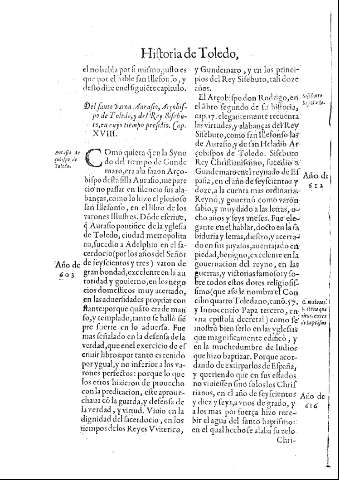 Historia de Toledo,
el no habla por si mismo, justo es
que por el hable san Illefonso, y
desto dize en el siguiẽte capitulo.
Del santo varon Aurasio, Arçobis-
po de Toledo, y del Rey Sisebu-
to, en cuyo tiempo presidio. Cap.
XVIII.
Aurasio ar-
çobispo de
Toledo.
COmo quiera que en la Syno
do del tiempo de Gunde
maro, era ala sazon Arço
bispo desta silla Aurasio, que par e
ce no passar en silencio sus ala-
banças, como lo hizo el glorioso
san Illefonso, en el libro de los
varones Illustres. Dõde escriue,
q̃ Aurasio pontifice de la yglesia
de Toledo, ciudad metropolita
na, sucedio a Adelphio en el sa-
Año de
603
cerdocio (por los años del Señor
de seyscientos y tres) varon de
gran bondad, excelente en la au
toridad y gouierno, en los nego
cios domesticos muy acertado,
en las aduersidades proprias con
stante: porque quanto era de man
so, y templado, tanto se halló siẽ
pre fuerte en lo aduerso. Fue
mas señalado en la defensa de la
verdad, que en el exercicio de es
criuir libros: por tanto es tenido
por ygual, y no inferior a los va-
rones perfectos: porque lo que
los otros hizieron de prouecho
con la predicacion, este aproue-
chaua có la guarda, y defensa de
la verdad, y virtud. Viuio en la
dignidad del sacerdocio, en los
tiempos de los Reyes Vviterico,
y Gundemaro, y en los princi-
pios del Rey Sisebuto, casi doze
años.
El Arçobispo don Rodrigo, en
el libro segundo de su historia,
cap. 17. elegantemente recuenta
las virtudes, y alabanças del Rey
Sisebuto, como san Illefonso las
de Aurasio, y de san Heladio Ar
çobispos de Toledo. Sisebuto
Rey Christianissimo, sucedio a
Gundemaro en el reynado de Es
Año de
612
paña, en el año de seyscientos y
doze, a la cuenta mas ordinaria.
Reynó, y gouernó como varon
sabio, y muy dado a las letras, o-
cho años y seys meses. Fue ele-
gante en el hablar, docto en la sa
biduria y letras, diestro, y acerta
do en sus juyzios, auentajado en
piedad, benigno, excelente en la
gouernacion del reyno, en las
guerras, y victorias famoso: y so-
bre todo esto de otros religiosis-
simo: (que assi le nombra el Con
cilio quarto Toledano, can. 57.
y Innocencio Papa tercero, en
vna epistola decretal) como se
mostró bien serlo en las yglesias
que magnificamente edificó, y
en la muchedumbre de Iudios
que hizo baptizar. Porque acor-
dando de extirparlos de España,
y queriendo que en sus estados
no viuiessen sino solos los Chris
Año de
616
tianos, en el año de seyscientos
y diez y seys, a vnos de grado, y
a los mas por fuerça hizo rece-
bir el agua del santo baptismo:
en el qual hecho se alaba su zelo
Chri-